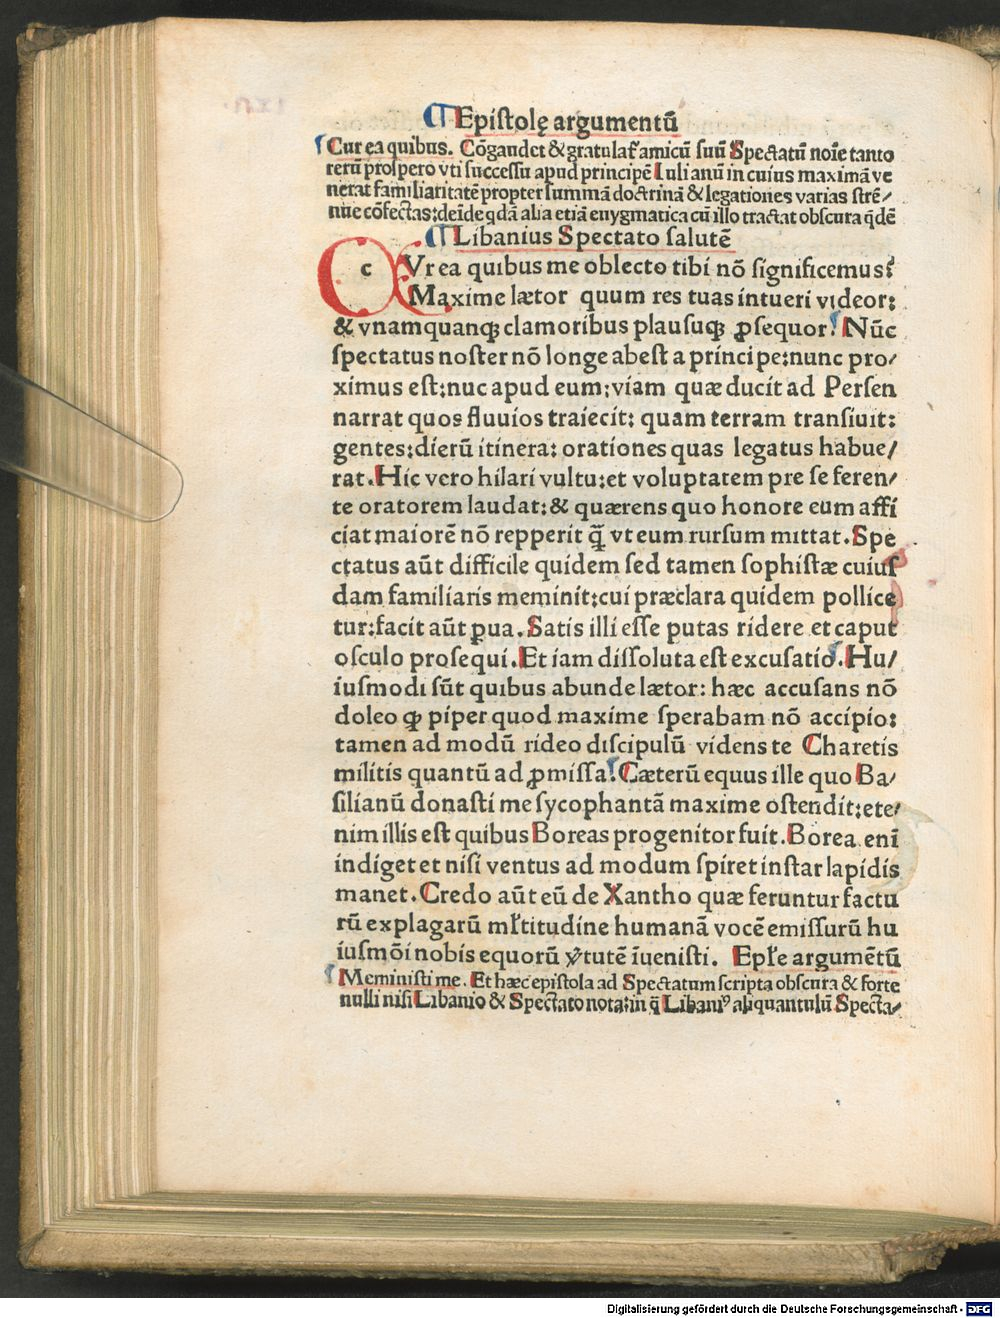 ¶Epistolę argumentū
Cur ea quibus. Cōgaudet & gratulat̄ amicū suū Spectatū noīe tanto
rerū prospero vti successu apud principē Iulianū in cuius maximā ve
nerat familiaritatē propter summā doctrinā & legationes varias strē/
nue cōfectas: deīde qdā alia etiā enygmatica cū illo tractat obscura q̄dē
¶Libanius Spectato salutē
cVr ea quibus me oblecto tibi nō significemus?
Maxime lætor quum res tuas intueri videor:
& vnamquanqꝫ clamoribus plausuqꝫ ꝓsequor. Nūc
spectatus noster nō longe abest a principe: nunc pro/
ximus est: nuc apud eum: viam quæ ducit ad Persen
narrat quos fluuios traiecit: quam terram transiuit:
gentes: dierū itinera: orationes quas legatus habue/
rat. Hic vero hilari vultu: et voluptatem pre se feren/
te oratorem laudat: & quærens quo honore eum affi
ciat maiorē nō repperit q̄ vt eum rursum mittat. Spe
ctatus aūt difficile quidem sed tamen sophistæ cuius
dam familiaris meminit: cui præclara quidem pollice
tur: facit aūt ꝑua. Satis illi esse putas ridere et caput
osculo prosequi. Et iam dissoluta est excusatio. Hu/
iusmodi sūt quibus abunde lætor: hæc accusans nō
doleo ꝙ piper quod maxime sperabam nō accipio:
tamen ad modū rideo discipulū videns te Charetis
militis quantū ad ꝓmissa. Cæterū equus ille quo Ba/
silianū donasti me sycophantā maxime ostendit: ete/
nim illis est quibus Boreas progenitor fuit. Borea enī
indiget et nisi ventus ad modum spiret instar lapidis
manet. Credo aūt eū de Xantho quæ feruntur factu
rū ex plagarū młtitudine humanā vocē emissurū hu
iusmōi nobis equorū v̓tutē īuenisti. Epłe argumētū
Meministi me. Et hæc epistola ad Spectatum scripta obscura & forte
nulli nisi Libanio & Spectato nota: in q̄ Libaniꝰ aliquantulū Specta/